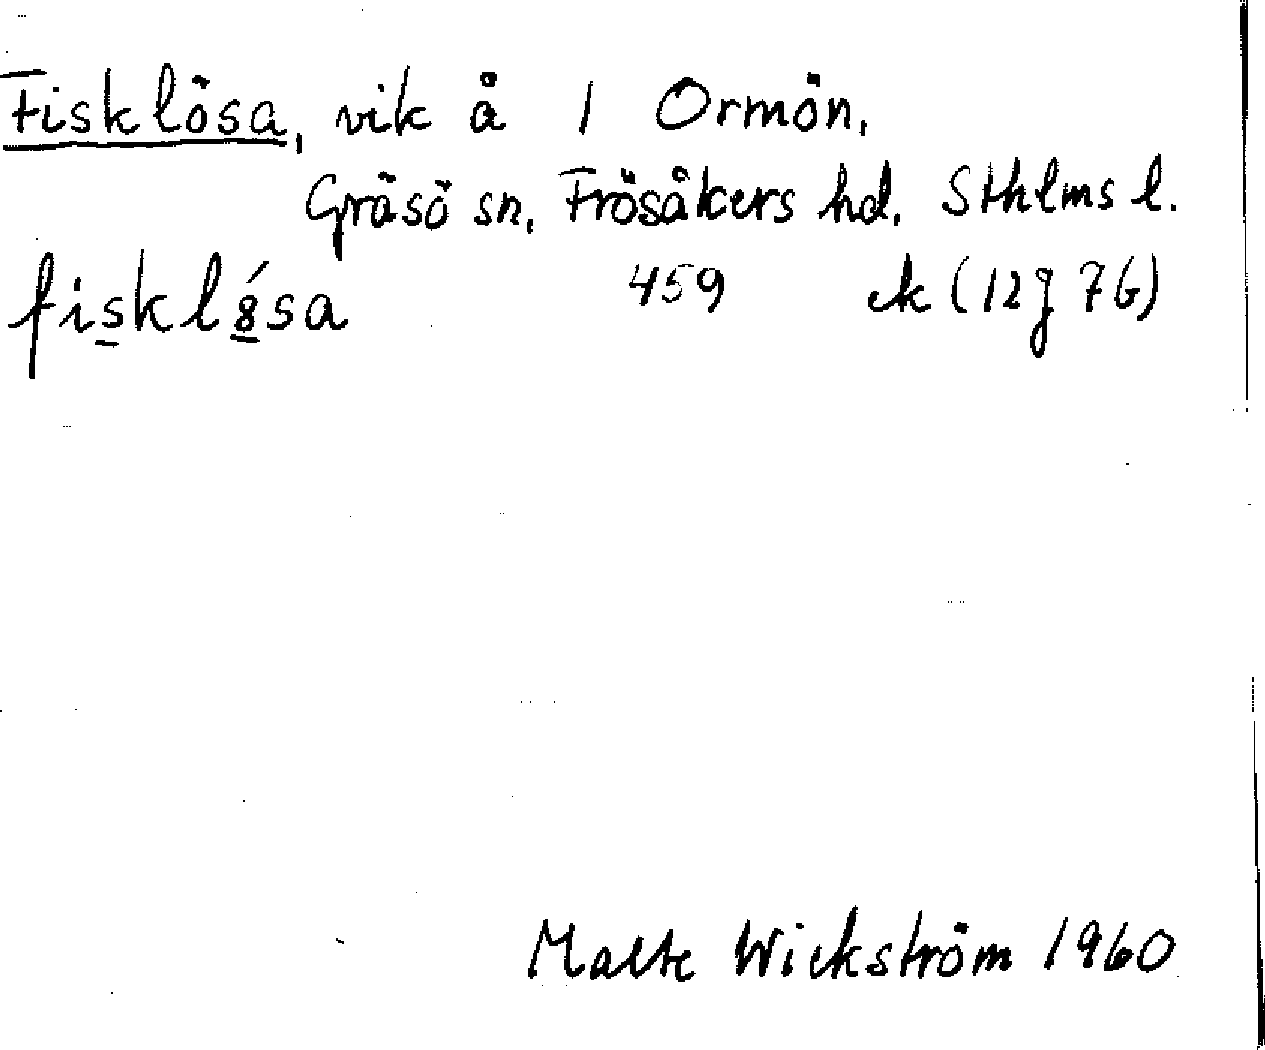 Fisklösa, vik å 1 Ormön,
Gräsö sn, Frösåkers hd. Sthlms l.
459 ek (12g 7b)
Malte Wickström 1960